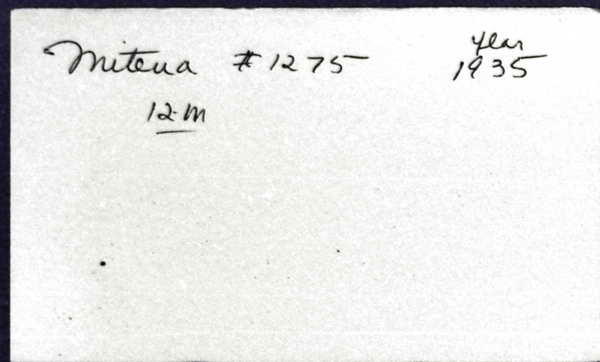 Mitena #1275 year 1935
12-M